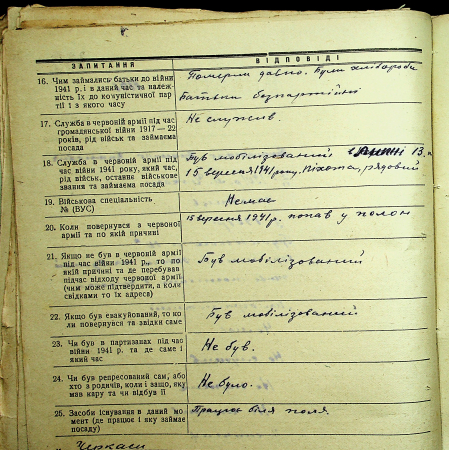 ЗАПИТАННЯ
ВІДПОВІДІ
16. Чим займались батьки до війни
1941 р. і в даний час та належ-
ність їх до комуністичної пар-
тії і з якого часу
Померли давно. Були хлібороби
Батьки безпартійні
17. Служба в червоній армії під час
громадянської війни 1917—22
років, рід військ та займаєма
посада
Не служив.
18. Служба в червоній армії під
час війни 1941 року, який час,
рід військ, останнє військове
звання та займаєма посада
Був мобілізований в липні 13.
15 вересня 1941 року, Піхота, рядовий
19. Військова спеціальність
№ (ВУС)
Немає
20. Коли повернувся з червоної
армії та по якій причині
15 вересня 1941 р. попав у полон
21. Якщо не був в червоній армії
під час війни 1941 р., то по
якій причині та де перебував
підчас відходу червоної армії
(чим може підтвердити, а коли
свідками то їх адреса)
Був мобілізований
22. Якщо був евакуйований, то ко-
ли повернувся та звідки саме
Був мобілізований
23. Чи був в партизанах під час
війни 1941 р. та де саме і
який час
Не був.
24. Чи був репресований сам, або
хто з родичів, коли і защо, яку
мав кару та чи відбув її
Не було.
25. Засоби існування в даний мо-
мент (де працює і яку займає
посаду)
Працює біля поля.
Черкаси